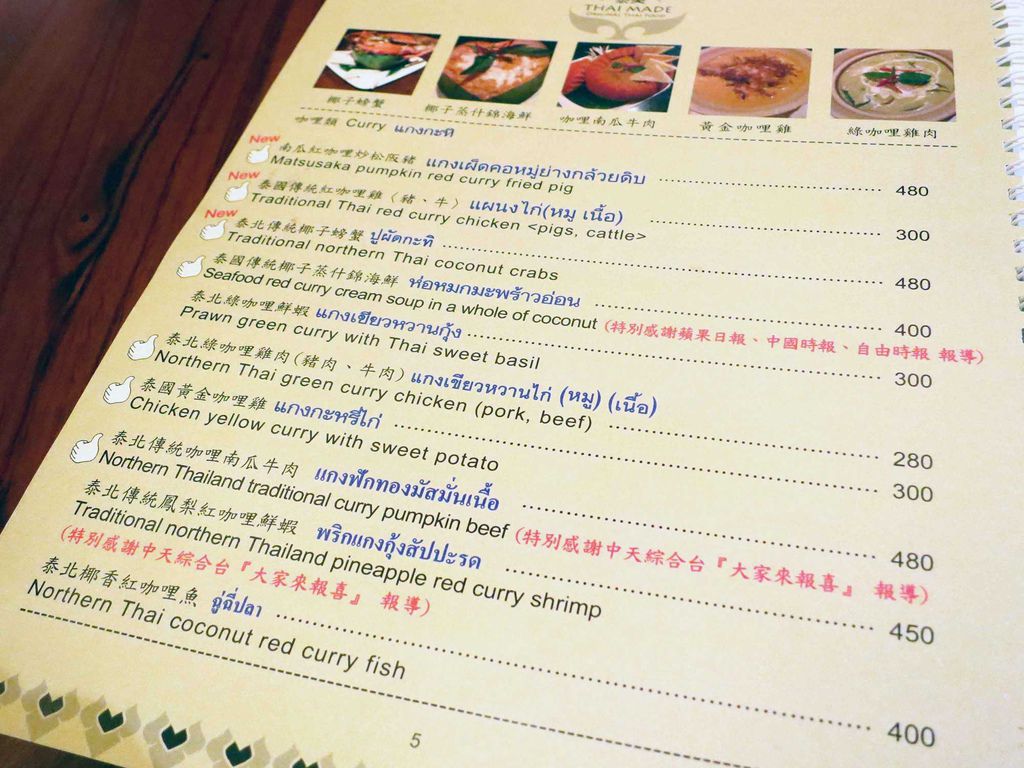 THAI MADE
ORIGINAL THAI FOOD
椰子螃蟹
椰子蒸什錦海鮮
咖哩南瓜牛肉
黃金咖哩雞
綠咖哩雞肉
咖哩類 Curry แกงกะทิ
New
南瓜紅咖哩炒松阪豬 แกงเผ็ดคอหมู่ย่างกล้วยดิบ 480
Matsusaka pumpkin red curry fried pig
New
泰國傳統紅咖哩雞〈豬、牛〉 แผนงไก่(หมู เนื้อ) 300
Traditional Thai red curry chicken <pigs, cattle>
New
泰北傳統椰子螃蟹 ปูผัดกะทิ 480
Traditional northern Thai coconut crabs
泰國傳統椰子蒸什錦海鮮 ห่อหมกมะพร้าวอ่อน 400
Seafood red curry cream soup in a whole of coconut (特別感謝蘋果日報、中國時報、自由時報 報導)
泰北綠咖哩鮮蝦 แกงเขียวหวานกุ้ง 300
Prawn green curry with Thai sweet basil
泰北綠咖哩雞肉(豬肉、牛肉) แกงเขียวหวานไก่ (หมู) (เนื้อ) 280
Northern Thai green curry chicken (pork, beef)
泰國黃金咖哩雞 แกงกะหรี่ไก่ 300
Chicken yellow curry with sweet potato
泰北傳統咖哩南瓜牛肉 แกงฟักทองมัสมั่นเนื้อ 480
Northern Thailand traditional curry pumpkin beef (特別感謝中天綜合台『大家來報喜』 報導)
泰北傳統鳳梨紅咖哩鮮蝦 พริกแกงกุ้งสัปปะรด 450
Traditional northern Thailand pineapple red curry shrimp
(特別感謝中天綜合台『大家來報喜』 報導)
泰北椰香紅咖哩魚 ฉู่ฉี่ปลา 400
Northern Thai coconut red curry fish
5